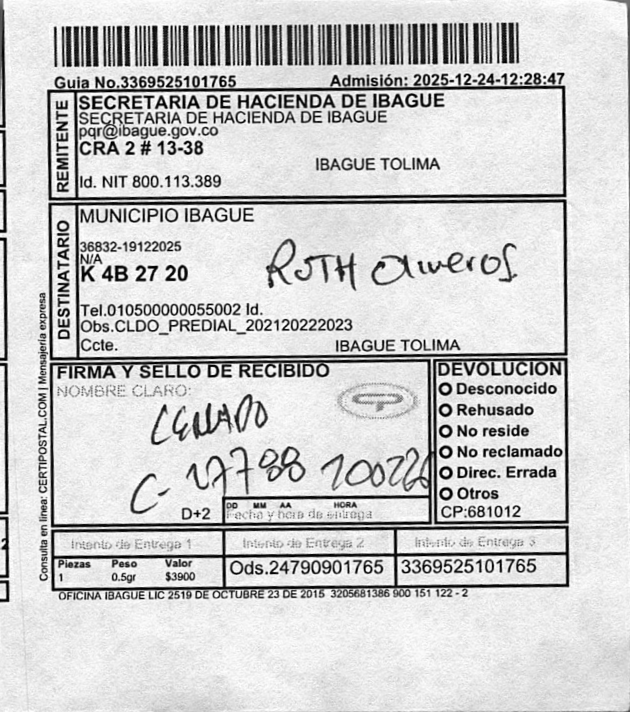 Guia No.3369525101765 Admisión: 2025-12-24-12:28:47
REMITENTE
SECRETARIA DE HACIENDA DE IBAGUE
SECRETARIA DE HACIENDA DE IBAGUE
pqr@ibague.gov.co
CRA 2 # 13-38
IBAGUE TOLIMA
Id. NIT 800.113.389
DESTINATARIO
MUNICIPIO IBAGUE
36832-19122025
N/A
K 4B 27 20
RUTH Oliveros
Tel.010500000055002 Id.
Obs.CLDO_PREDIAL_202120222023
Ccte. IBAGUE TOLIMA
Consulta en línea: CERTIPOSTAL.COM | Mensajería expresa
FIRMA Y SELLO DE RECIBIDO
NOMBRE CLARO:
C- 17788
D+2
DD MM AA HORA
Fecha y hora de entrega
DEVOLUCION
Desconocido
Rehusado
No reside
No reclamado
Direc. Errada
Otros
CP:681012
Intento de Entrega 1 Intento de Entrega 2 Intento de Entrega 3
Piezas Peso Valor
1 0.5gr $3900
Ods.24790901765 3369525101765
OFICINA IBAGUE LIC 2519 DE OCTUBRE 23 DE 2015 3205681386 900 151 122 - 2